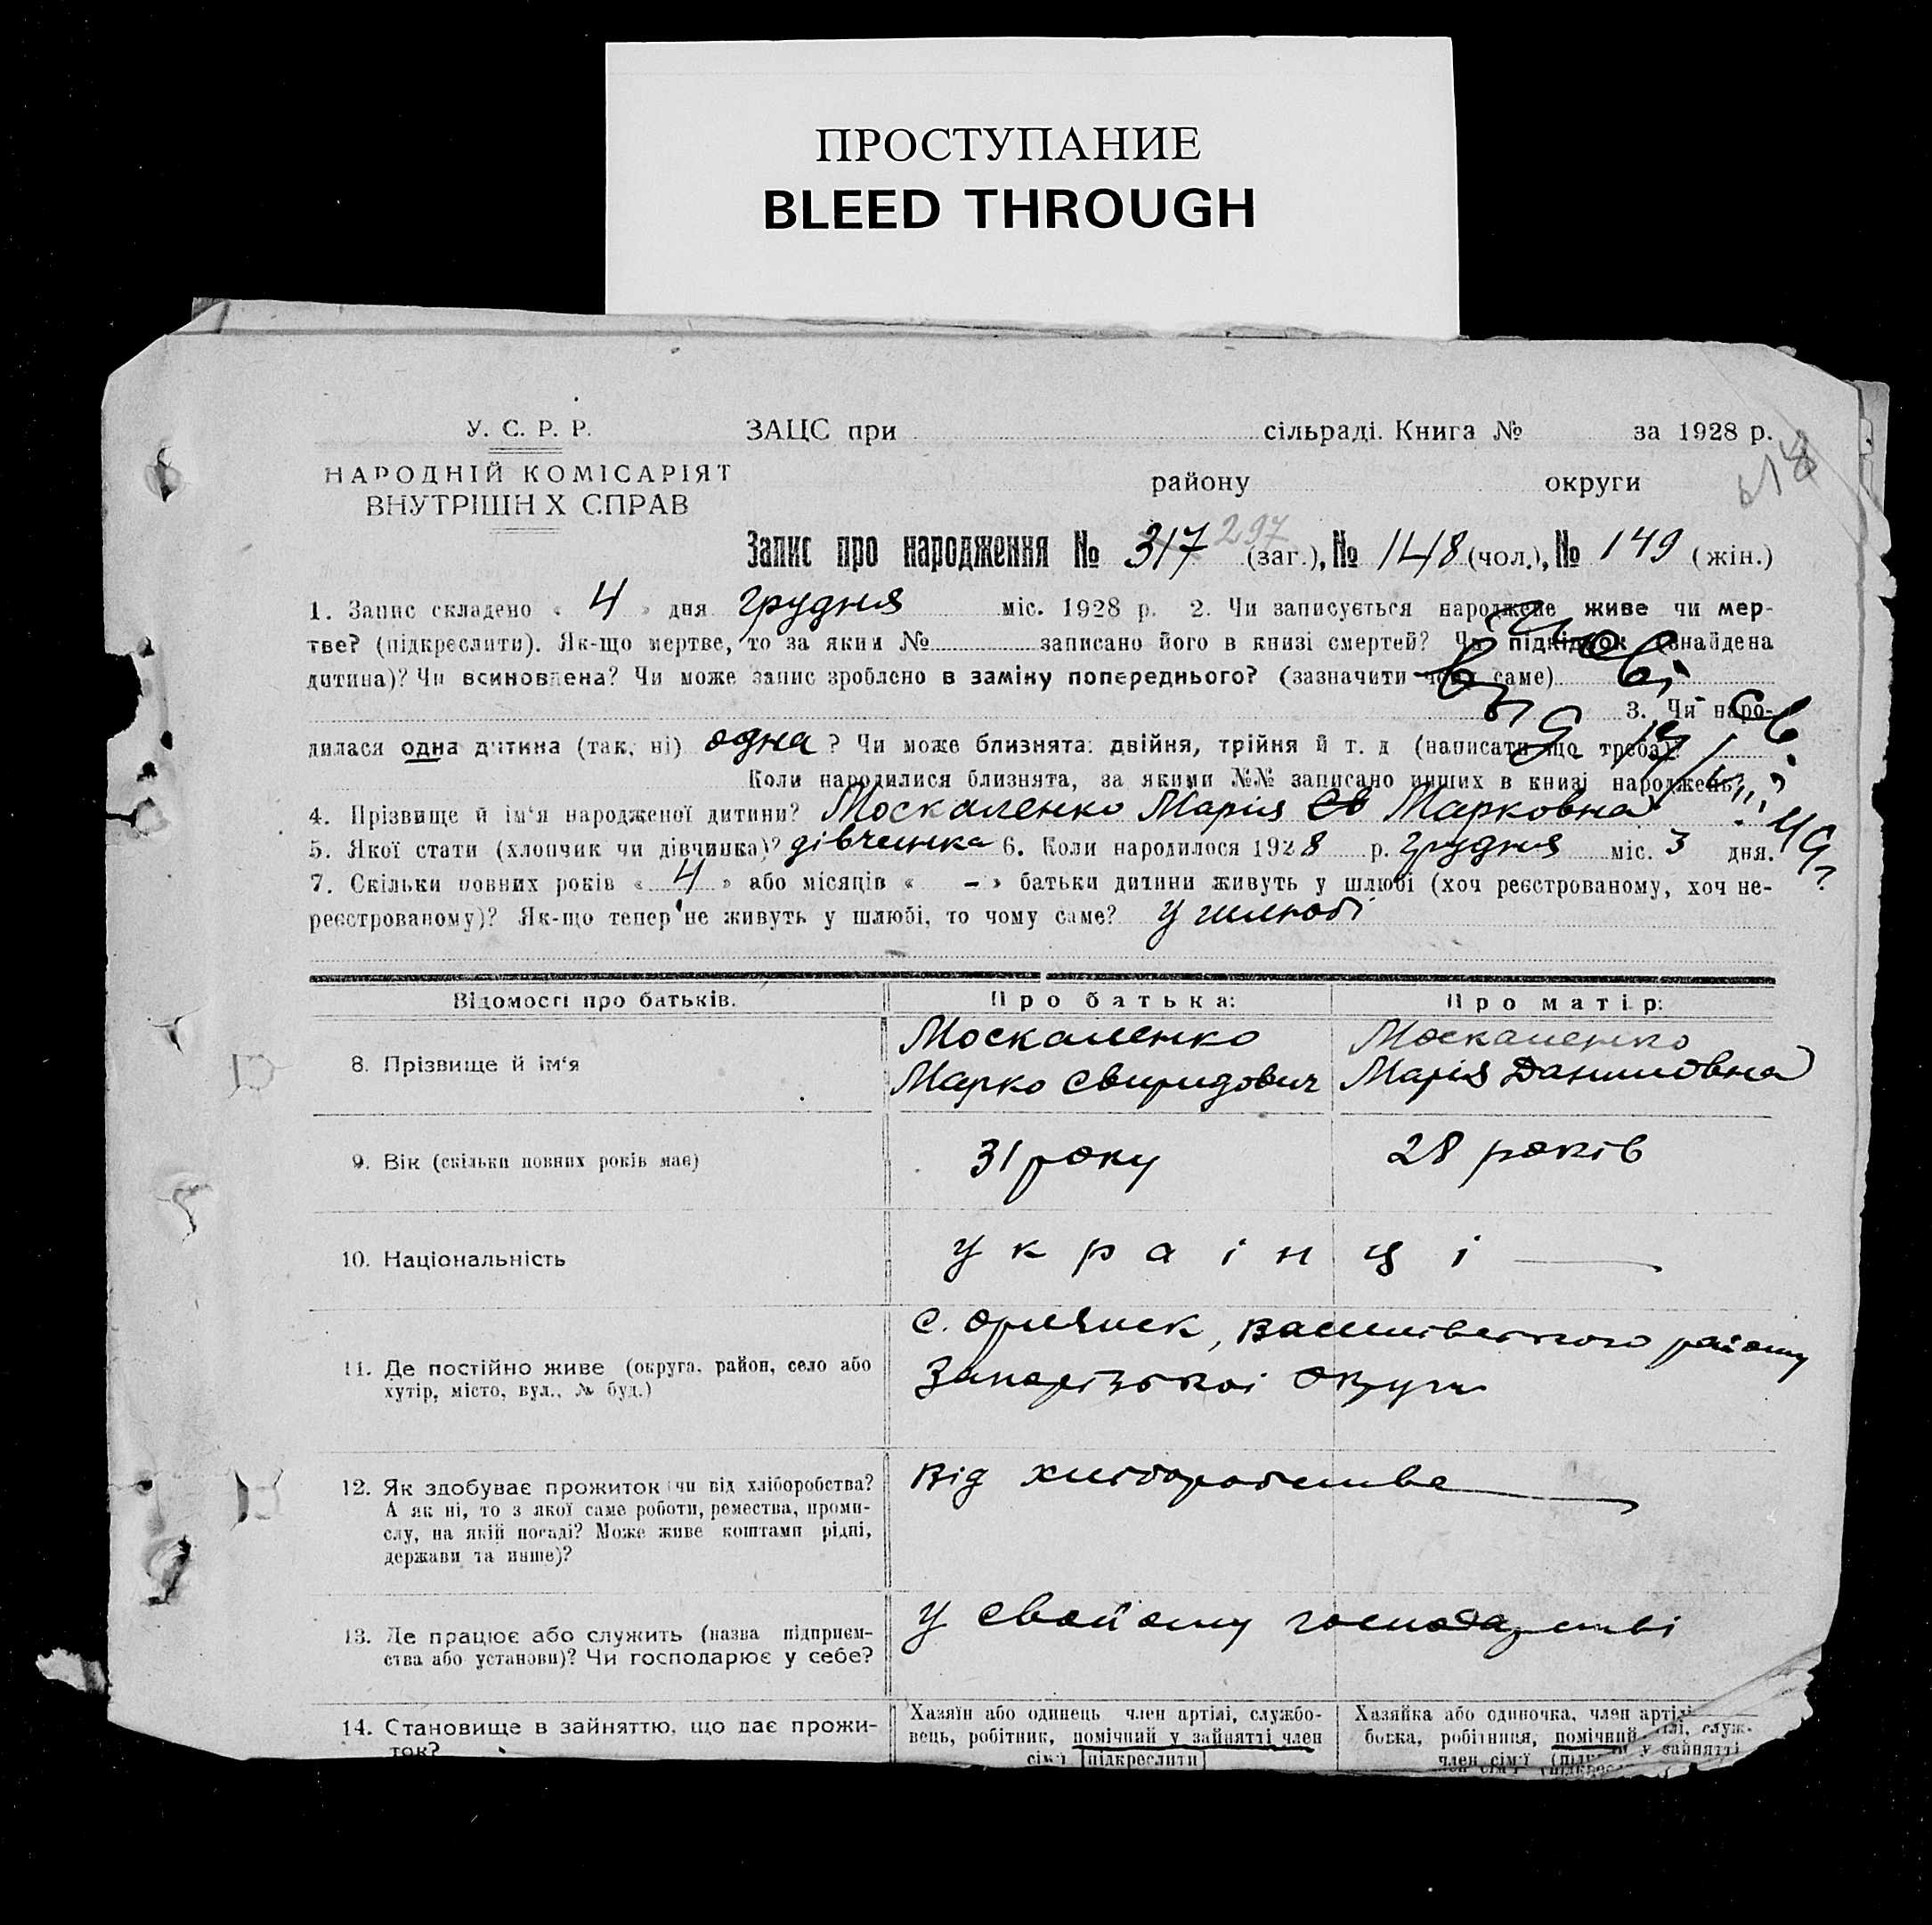 ПРОСТУПАНИЕ
BLEED THROUGH
У. С. Р. Р.
НАРОДНІЙ КОМІСАРІЯТ
ВНУТРІШН Х СПРАВ
ЗАЦС при сільраді. Книга № за 1928 р.
району округи
Запис про народження № 317 297 (заг.), № 148 (чол.), № 149 (жін.)
1. Запис складено « 4 » дня грудня міс. 1928 р. 2. Чи записується народжене живе чи мер-
тве? (підкреслити). Як-що мертве, то за яким № записано його в книзі смертей? Чи підкідьок знайдена
дитина)? Чи всиновлена? Чи може запис зроблено в заміну попереднього? (зазначити саме)
3. Чи наро-
дилася одна дитина (так, ні) одна ? Чи може близнята: двійня, трійня й т. д (написати що треба)?
Коли народилися близнята, за якими №№ записано инших в книзі народжень?
4. Прізвище й ім'я народженої дитини? Москаленко Марія Марковна
5. Якої статі (хлопчик чи дівчинка)? дівчинка 6. Коли народилося 1928 р. грудня міс. 3 дня.
7. Скільки повних років « 4 » або місяців « - » батьки дитини живуть у шлюбі (хоч реєстрованому, хоч не-
реєстрованому)? Як-що тепер не живуть у шлюбі, то чому саме? у шлюбі
Відомості про батьків. Про батька: Про матір:
8. Прізвище й ім'я Москаленко Марко Свиридович Москаленко Марія Даниловна
9. Вік (скільки повних років має) 31 року 28 років
10. Національність українці
11. Де постійно живе (округа, район, село або
хутір, місто, вул., № буд.)
с. Орлянск, Василівського району
Запорізької Округи
12. Як здобуває прожиток (чи від хліборобства?
А як ні, то з якої саме роботи, ремества, проми-
слу, на якій посаді? Може живе коштами рідні,
держави та инше)?
Від хліборобства
13. Де працює або служить (назва підприєм-
ства або установи)? Чи господарює у себе?
У свойому господарстві
14. Становище в зайняттю, що дає прожи-
ток?
Хазяїн або одинець член артілі, службо-
вець, робітник, помічний у зайнятті член
сім'ї (підкреслити)
Хазяйка або одиночка, член артілі, служ-
бовка, робітниця, помічний у зайнятті
член сім'ї